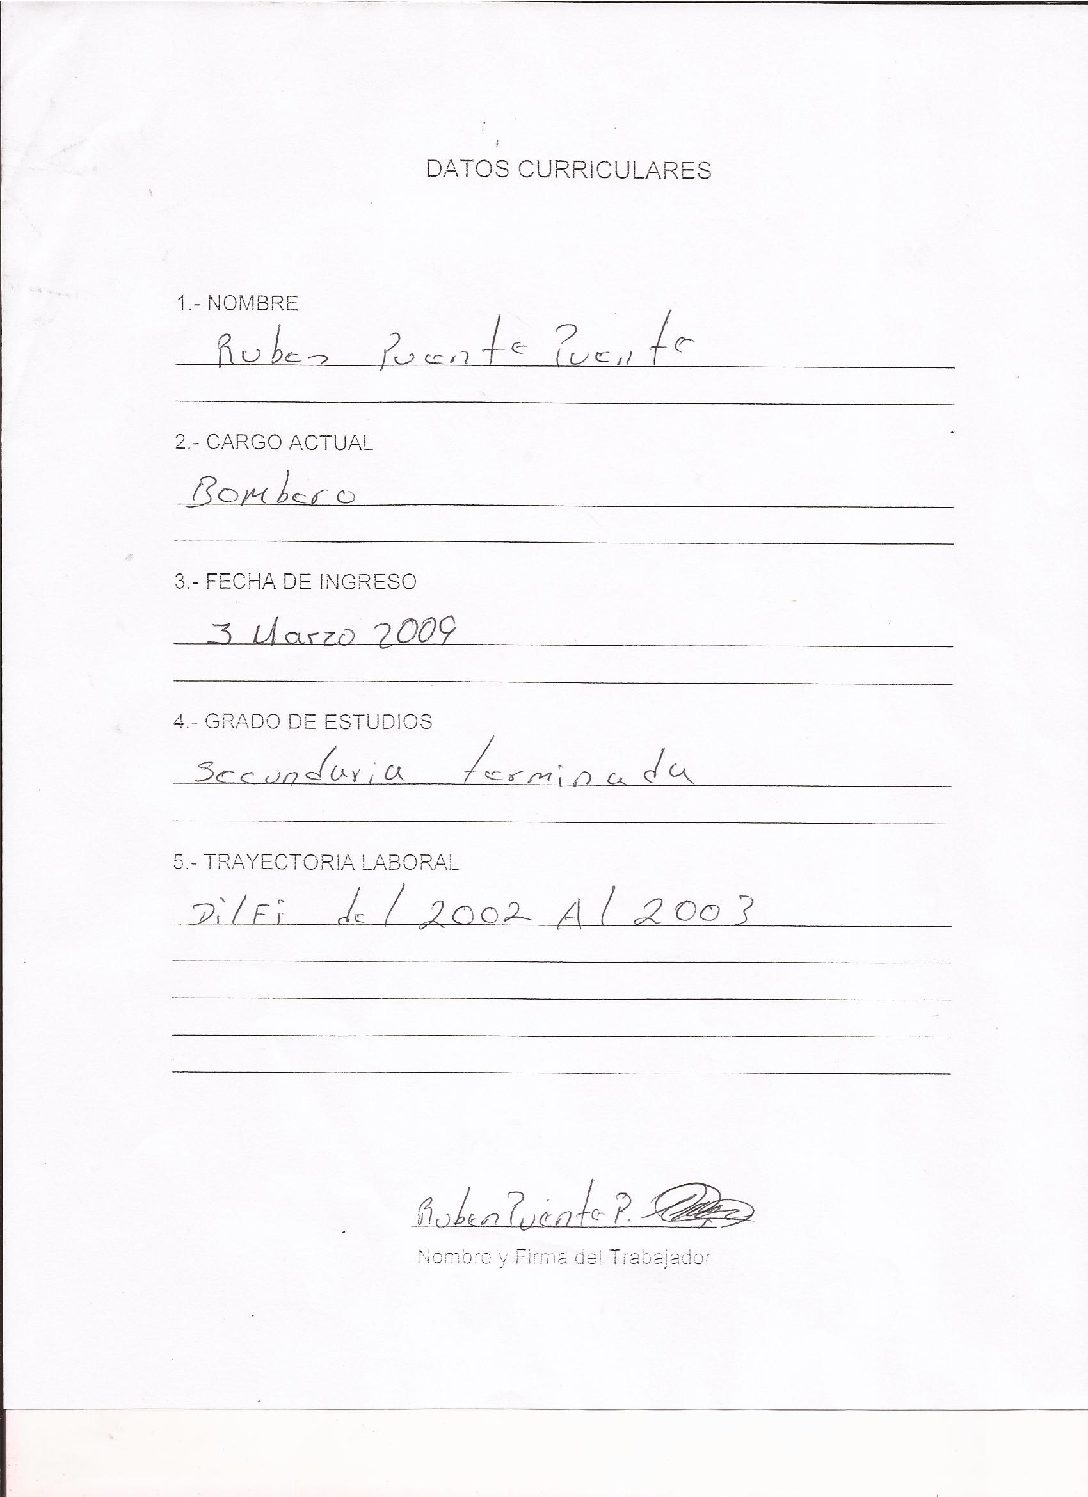 DATOS CURRICULARES
1.- NOMBRE
Ruben Puente Puente
2.- CARGO ACTUAL
Bombero
3.- FECHA DE INGRESO
3 Marzo 2009
4.- GRADO DE ESTUDIOS
Secundaria terminada
5.- TRAYECTORIA LABORAL
DilFi del 2002 Al 2003
Ruben Puente P.
Nombre y Firma del Trabajador